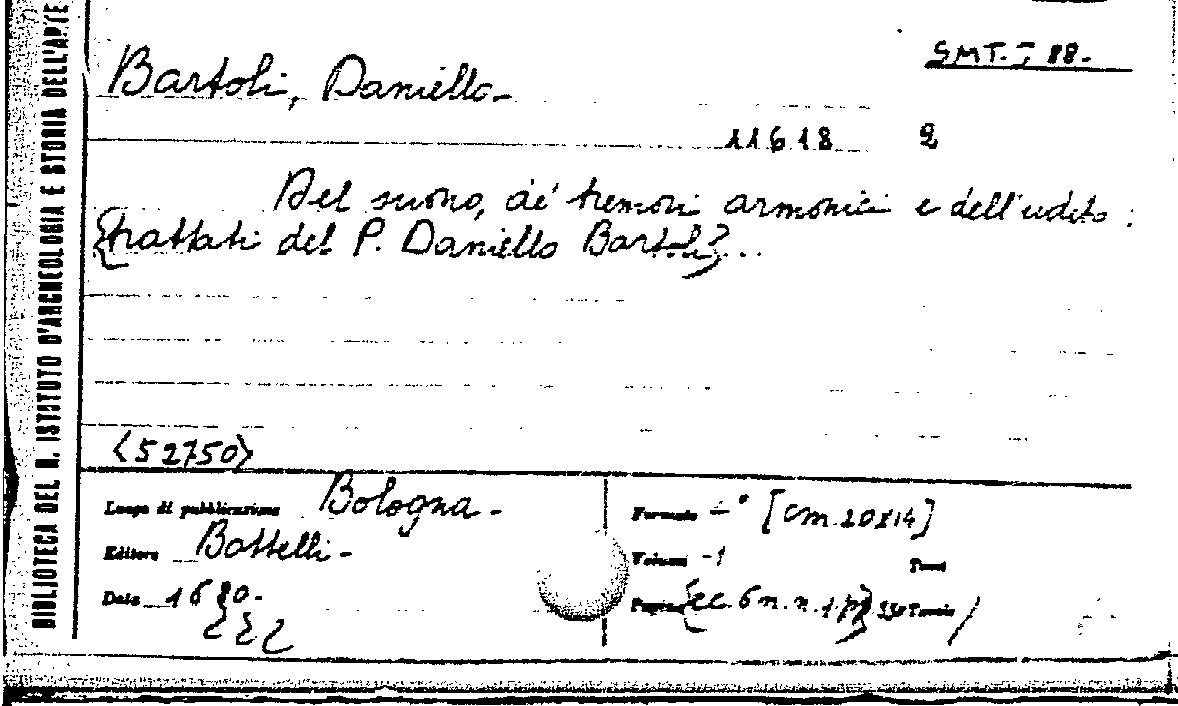 BIBLIOTECA DEL R. ISTITUTO D'ARCHEOLOGIA E STORIA DELL'ARTE
SMT. I 88.
Bartoli, Daniello-
11618 2
Del suono, de' tremori armonici e dell'udito :
trattati del P. Daniello Bartoli...
<52750>
Luogo di pubblicazione Bologna -
Editore Bottelli -
Data 1680.
Formato 4° [cm 20x14]
Volumi -1 Tomi
Pagine cc. 6 n. n. 330 Tavole /